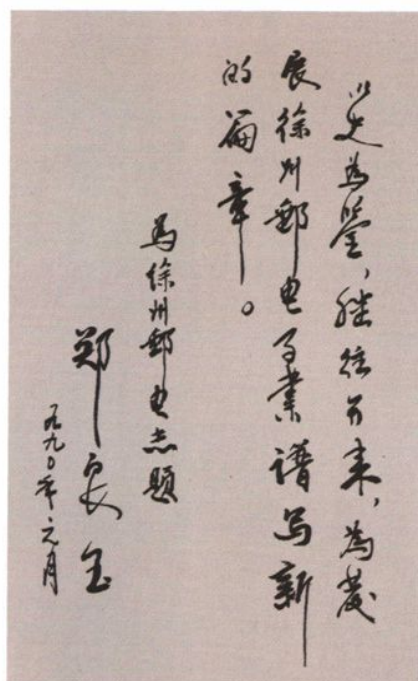 以史为鉴，继往开来，為发
展徐州邮电事業谱写新
的篇章。
為徐州邮电志题
郑良玉
一九九〇年元月